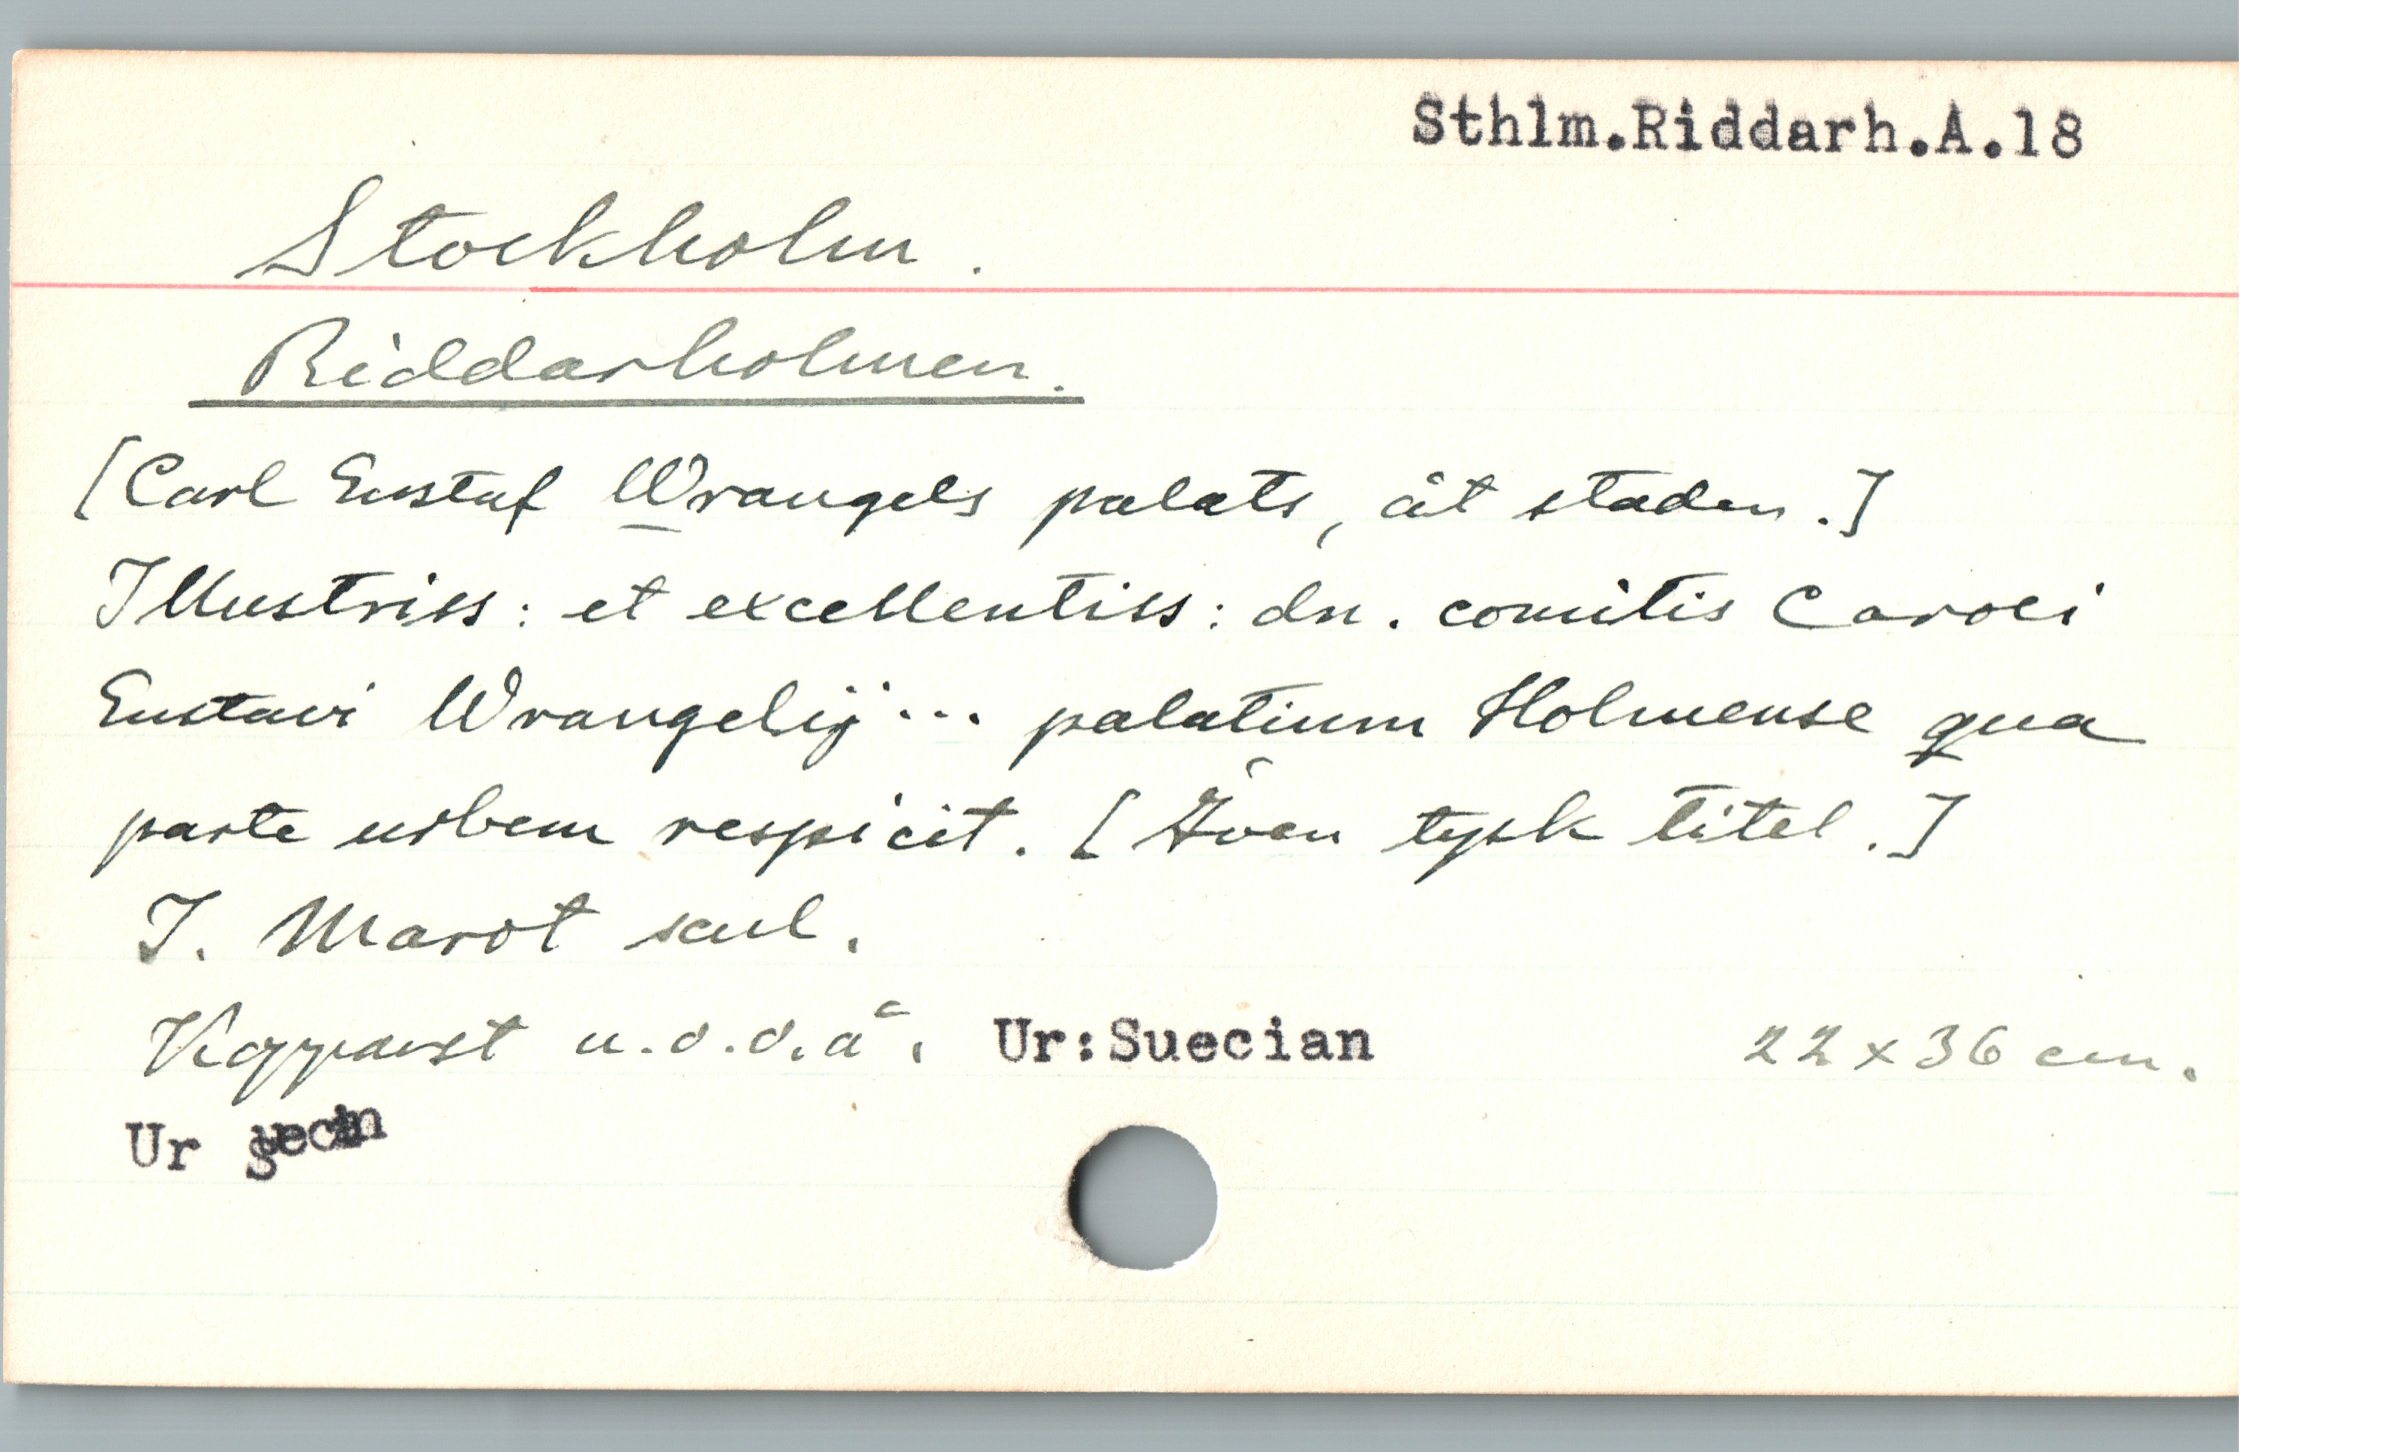 Sthlm.Riddarh.A.18
Stockholm.
Riddarholmen.
[Carl Gustaf Wrangels palats, åt staden.]
Illustriss: et excellentiss: dn. comitis Caroli
Gustavi Wrangelij... palatium Holmense qua
parte urbem respicit. [Även tysk titel.]
J. Marot scul.
Kopparst u.o.o.å. Ur:Suecian 22 x 36 cm.
Ur